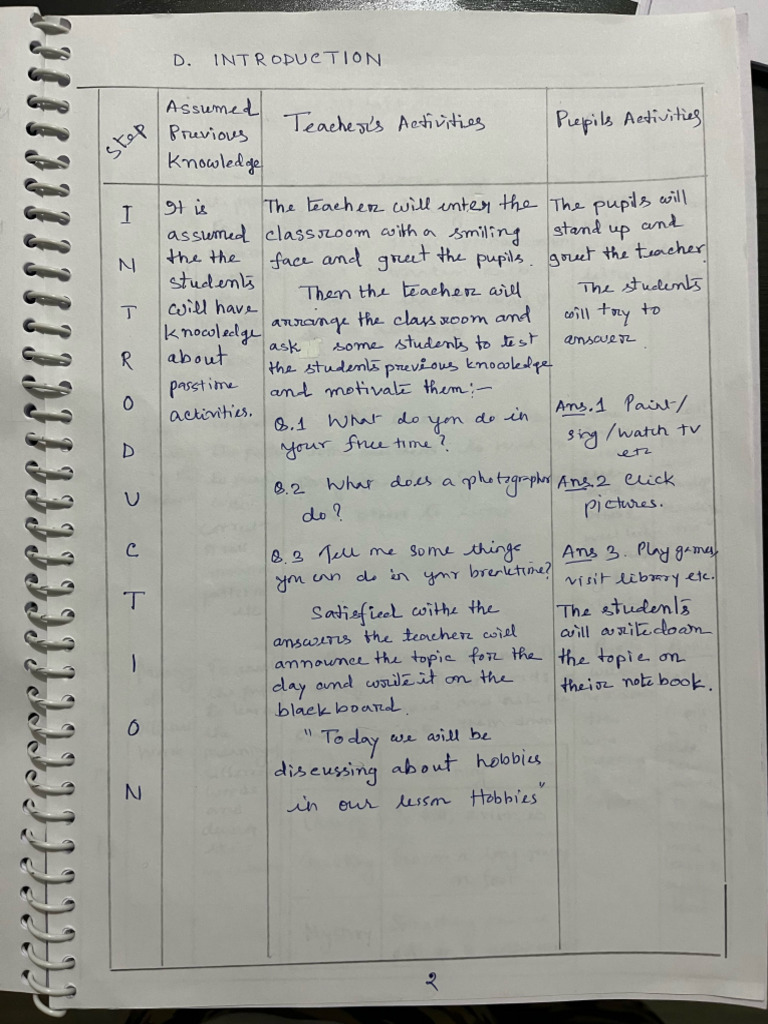 D. INTRODUCTION
Step
Assumed
Previous
Knowledge
Teacher's Activities
Pupils Activities
I
N
T
R
O
D
U
C
T
I
O
N
It is
assumed
the the
students
will have
knowledge
about
passtime
activities.
The teacher will enter the
classroom with a smiling
face and greet the pupils.
Then the teacher will
arrange the classroom and
ask some students to test
the students previous knowledge
and motivate them:-
Q.1 What do you do in
your free time?
Q.2 What does a photographer
do?
Q.3 Tell me some things
you can do in your breaktime?
Satisfied withe the
answers the teacher will
announce the topic for the
day and write it on the
blackboard.
"Today we will be
discussing about hobbies
in our lesson Hobbies"
The pupils will
stand up and
greet the teacher.
The students
will try to
answer.
Ans.1 Paint/
sing/watch tv
etc
Ans.2 Click
pictures.
Ans 3. Play games,
visit library etc.
The students
will write down
the topic on
their notebook.
2